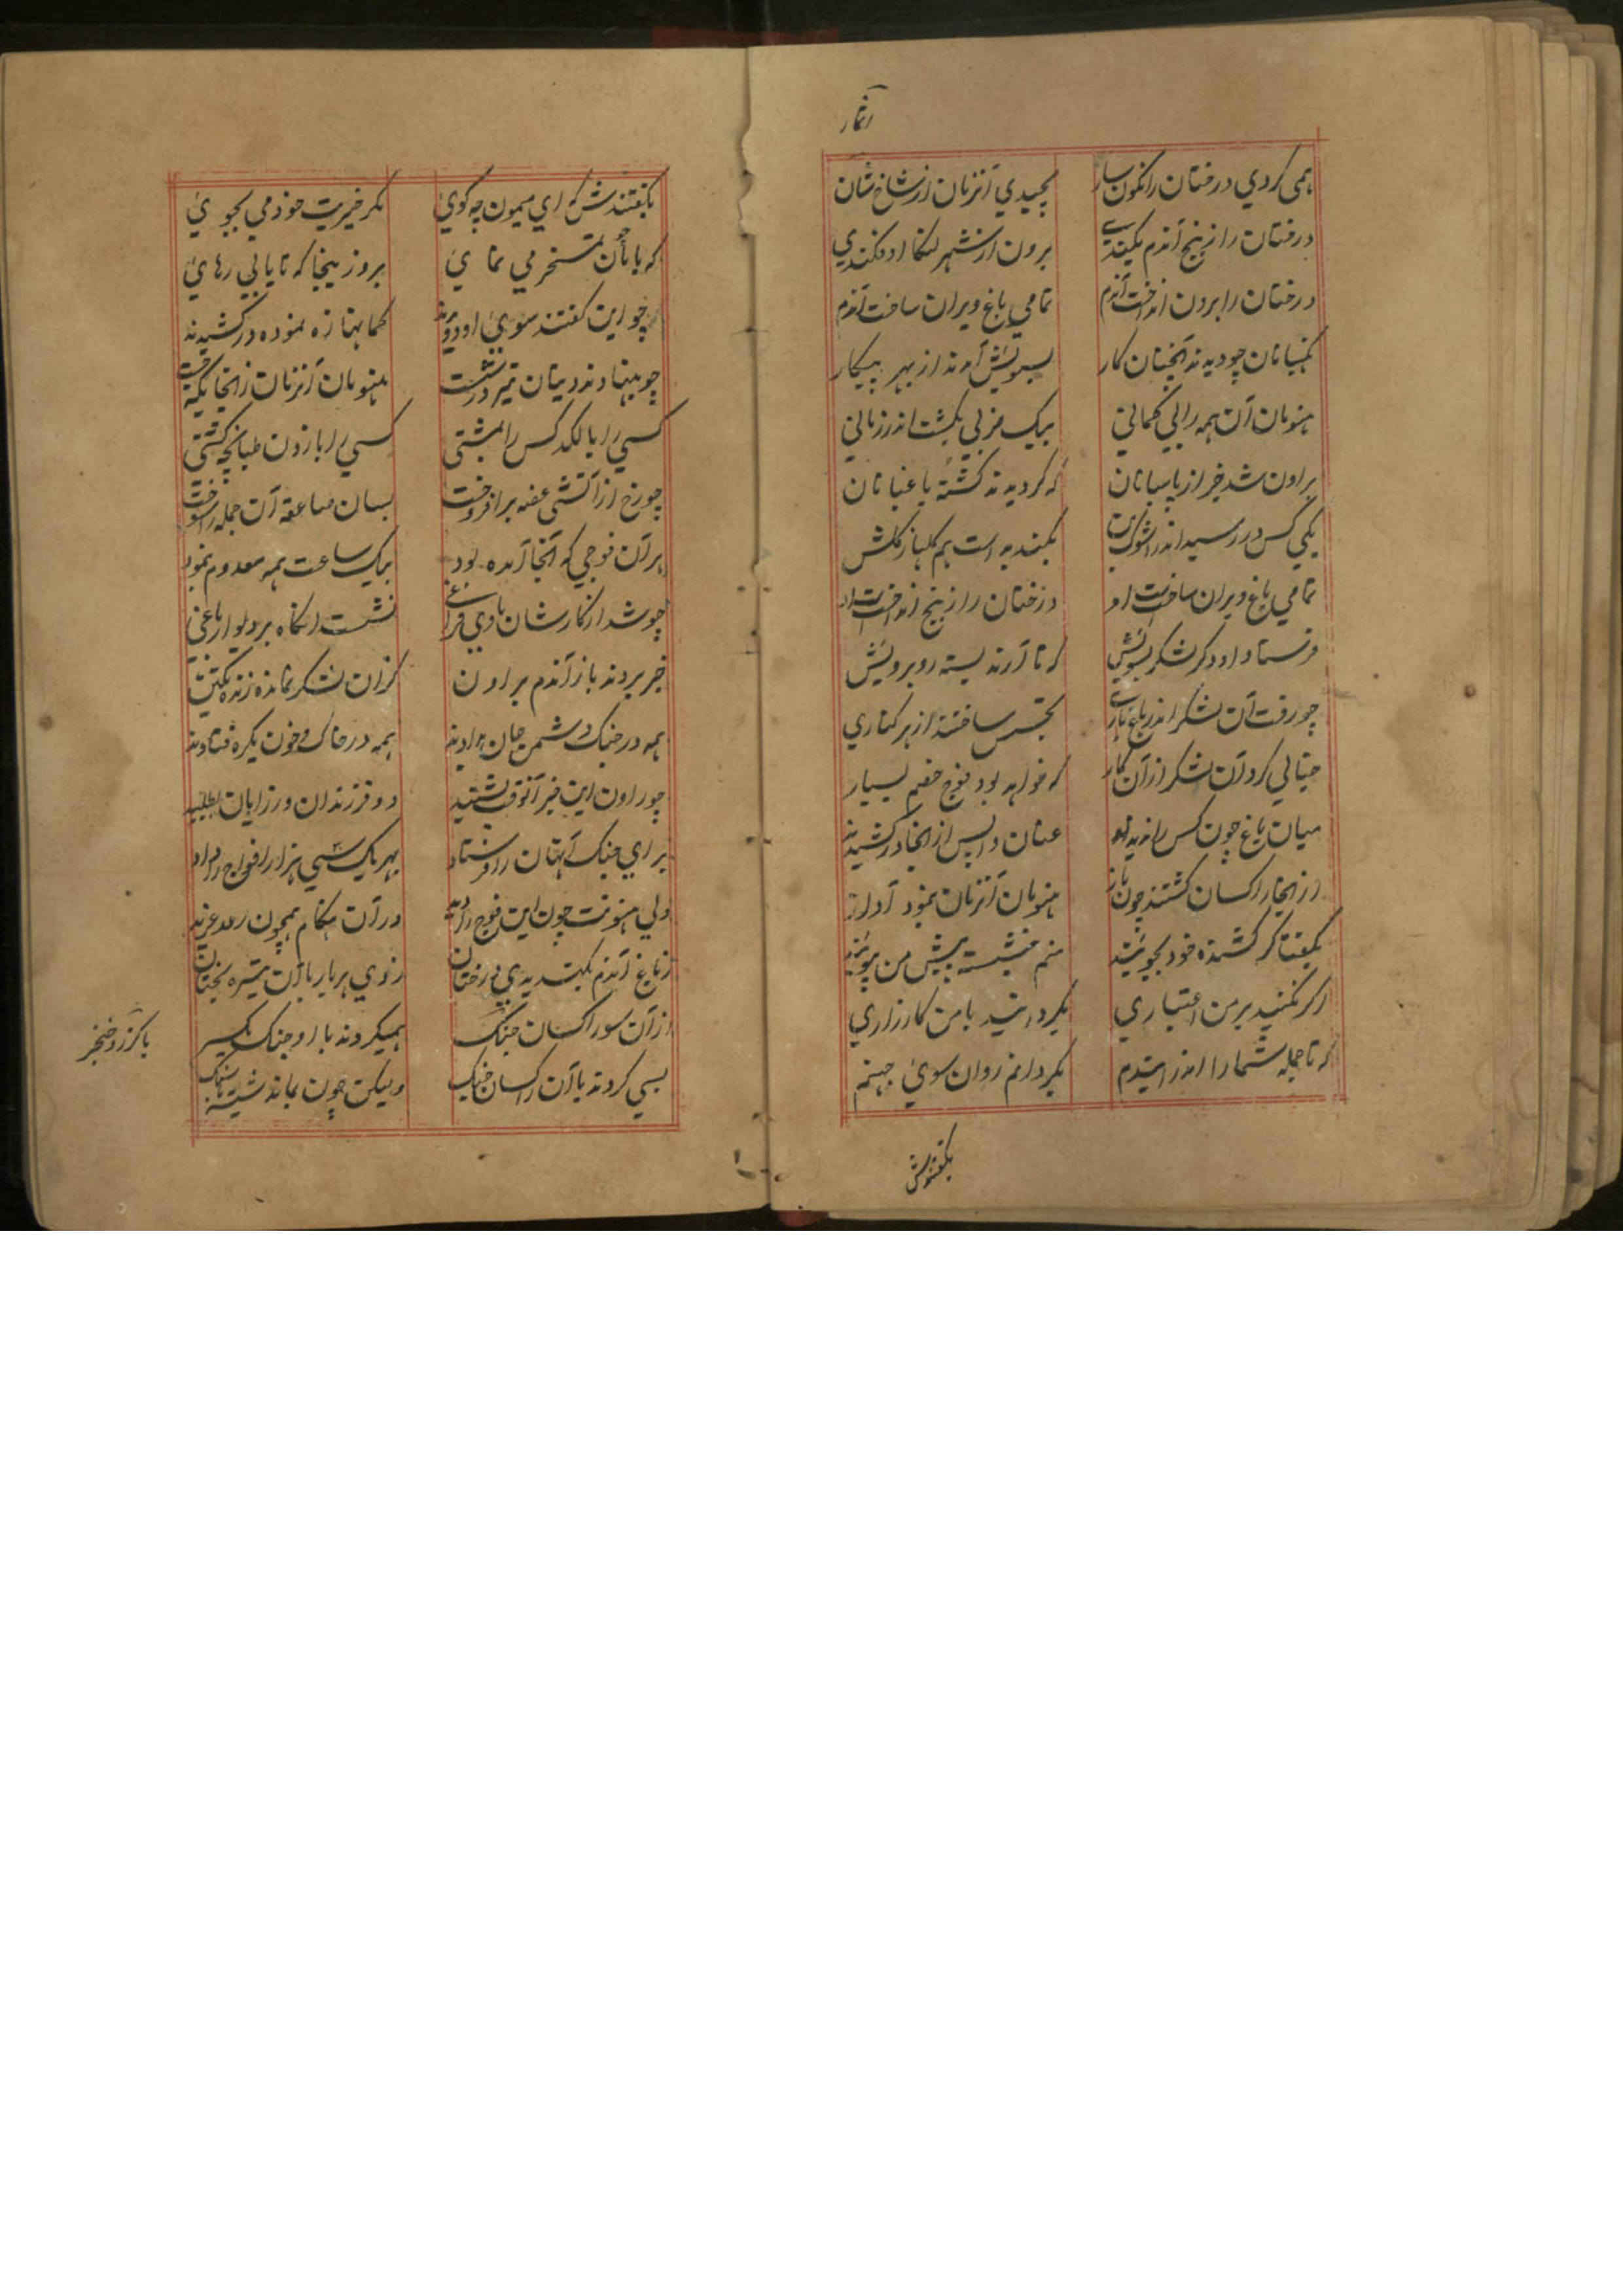 اثمار
همی کردی درختان را نکون سار بچیدی آنزمان از شاخ شان
درختان را ز بیخ آندم بکندی برون از شهر لنکا اوفکندی
درختان را برون انداخت آندم تمامی باغ ویران ساخت آندم
نکهبانان چو دیدند آنچنان کار بسویش آمدند از بهر پیکار
هنومان آن همه را بی کمانی بیک ضربی بکشت اندر زمانی
براون شد خبر از پاسبانان که کردیدند کشته باغبانان
یکی کس در رسید اندر بکندیده است هم کلهاز کلش
تمامی باغ ویران ساخت است او درختان را ز بیخ انداخت است او
فرستاد او دکر لشکر بسویش که تا آرند بسته روبرویش
چو رفت آن لشکر اندر باغ باری تجسس ساختند از هر کناری
خیالی کرد آن لشکر از آن کار که خواهد بود فوج خصم بسیار
میان باغ چون کس را ندیدند عنان واپس از آنجا در کشیدند
از آنجا راکسان کشتند چون باز هنومان آنزمان نمود آواز
بکفتا کر کشنده خود بجوئید منم بنشسته پیش من بپوئید
اکر نکنید بر من اعتباری بکردانید با من کارزاری
که تا جمله شما را اندر ایندم بکردانم روان سوی جهنم
بکفتندش
بکفتندش که ای میمون چه کوی مکر خیریت خود می بجوی
که با مایان تمسخر می نمای برو زینجا که تا یابی رهای
چو این کفتند سوی او دویدند کمانها زه نموده در کشیدند
چو بنهادند دریشان تیر در شست هنومان آنزمان زانجایکه جست
کسی را با لکد کس را بمشتی کسی را با زدن طبانچه کشتی
چو رخ از آتشی غصه برافروخت بسان صاعقه آن جمله را سوخت
هر آن فوجی که آنجا آمده بود بیک ساعت همه معدوم نمود
چو شد از کارشان با وی فراغی نشست آنکاه بر دیوار باغی
خبر بردند باز آندم براون کزان لشکر نمانده زنده یکتن
همه در جنک دشمن جان بدادند همه در خاک و خون یکره فتادند
چو راون این خبر آنوقت بشنید دو فرزندان ورزایان طلبید
برای جنک آنهان را فرستاد بهر یک سی هزار افواج را داد
ولی هنونت چون این فوج را دید در آن هنکام همچون رعد غرید
ز باغ آندم بکندیدی درختان زدی هر بار بر آن تیره بختان
از آن سو راکسان جنک همیکردند با او جنک یکسر
با کرز و خنجر
بسی کردند با آن راکسان جنک ولیکن چون بماند